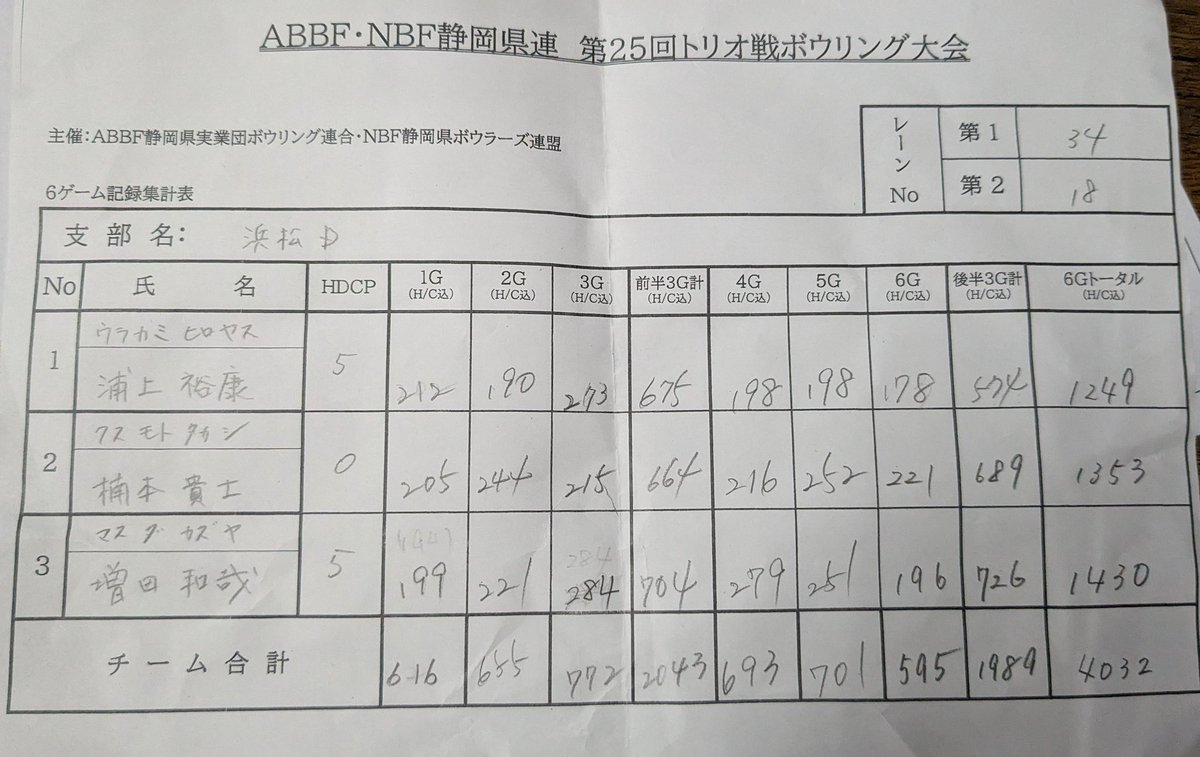 ABBF・NBF静岡県連 第25回トリオ戦ボウリング大会
主催:ABBF静岡県実業団ボウリング連合・NBF静岡県ボウラーズ連盟
レーンNo 第1 34
第2 18
6ゲーム記録集計表
支部名: 浜松D
No 氏名 HDCP 1G (H/C込) 2G (H/C込) 3G (H/C込) 前半3G計 (H/C込) 4G (H/C込) 5G (H/C込) 6G (H/C込) 後半3G計 (H/C込) 6Gトータル (H/C込)
ウラカミ ヒロヤス
1 浦上 裕康 5 212 190 273 675 198 198 178 574 1249
クスモト タカシ
2 楠本 貴士 0 205 244 215 664 216 252 221 689 1353
マスダ カズヤ
284
3 増田 和哉 5 199 221 284 704 279 251 196 726 1430
チーム合計 616 655 772 2043 693 701 595 1989 4032